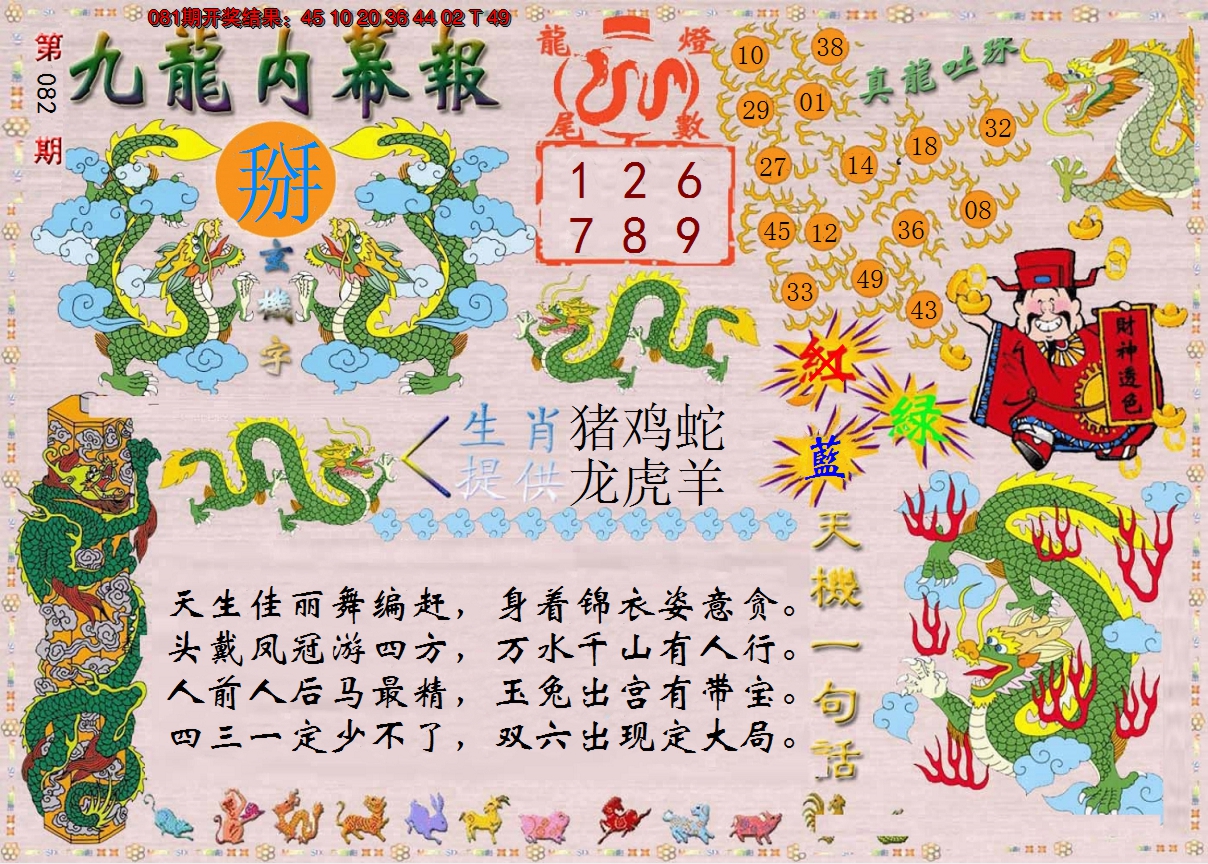 081期开奖结果：45 10 20 36 44 02 T 49
第082期
九龍内幕報
掰
玄機字
龍燈
尾數
1 2 6
7 8 9
真龍吐珠
10 38
29 01
27 14 18 32
45 12 36 08
33 49 43
財神透色
紅
綠
藍
生肖 猪鸡蛇
提供 龙虎羊
天生佳丽舞编赶，身着锦衣姿意贪。
头戴凤冠游四方，万水千山有人行。
人前人后马最精，玉兔出宫有带宝。
四三一定少不了，双六出现定大局。
天機一句話